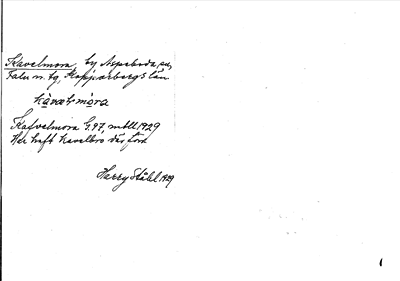 Kavelmora, by Aspeboda sn,
Falu n. tg, Kopparbergs län
kàvəlmòra
Kafvelmora G.97, mtll 1929
Har haft kavelbro därförr
Harry Ståhl 1929